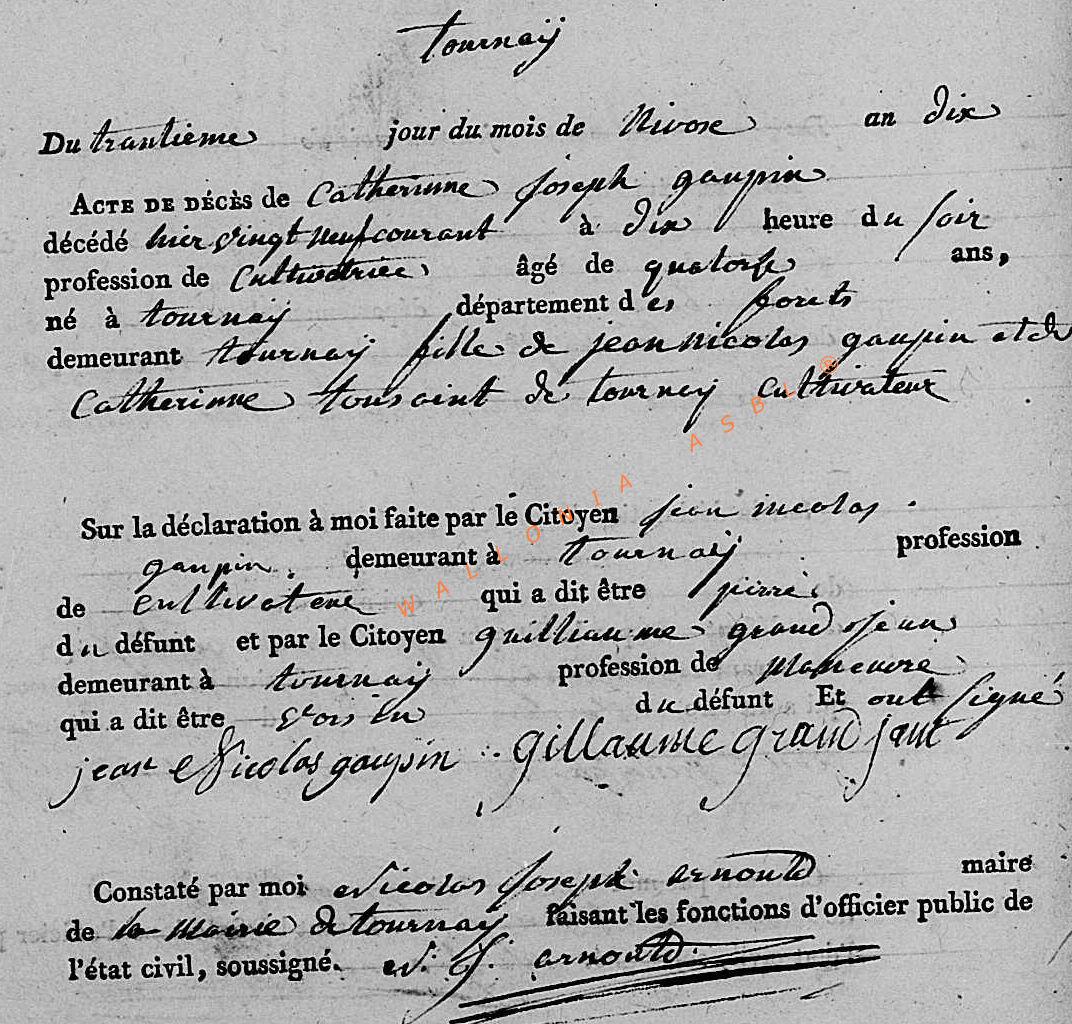 tournaÿ
Du trantieme jour du mois de Nivose an dix
ACTE DE DÉCÈS de Catherinne joseph gaupin
décédé hier vingt neuf courant à dix heure du soir
profession de Cultivatrice âgé de quatorse ans,
né à tournaÿ département des forets
demeurant tournaÿ fille de jean nicolas gaupin et de
Catherinne tousaint de tournay Cultivateur
Sur la déclaration à moi faite par le Citoyen jean nicolas
gaupin demeurant à tournaÿ profession
de Cultivateur qui a dit être
du défunt et par le Citoyen guilliaume grand jean
demeurant à tournaÿ profession de maneuvre
qui a dit être voisin du défunt Et ont signé
jean Nicolas gaupin gillaume grand jant
Constaté par moi Nicolas joseph arnould maire
de la mairie de tournay faisant les fonctions d'officier public de
l'état civil, soussigné. N. J. arnould
WALLONIA ASBL ®